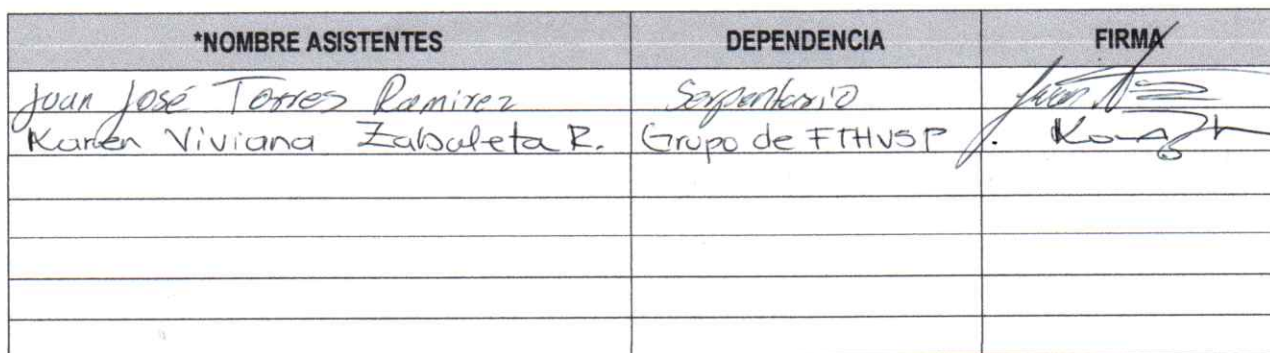 *NOMBRE ASISTENTES DEPENDENCIA FIRMA
Juan José Torres Ramirez Serpentario Juan
Karen Viviana Zabaleta R. Grupo de FTHVSP